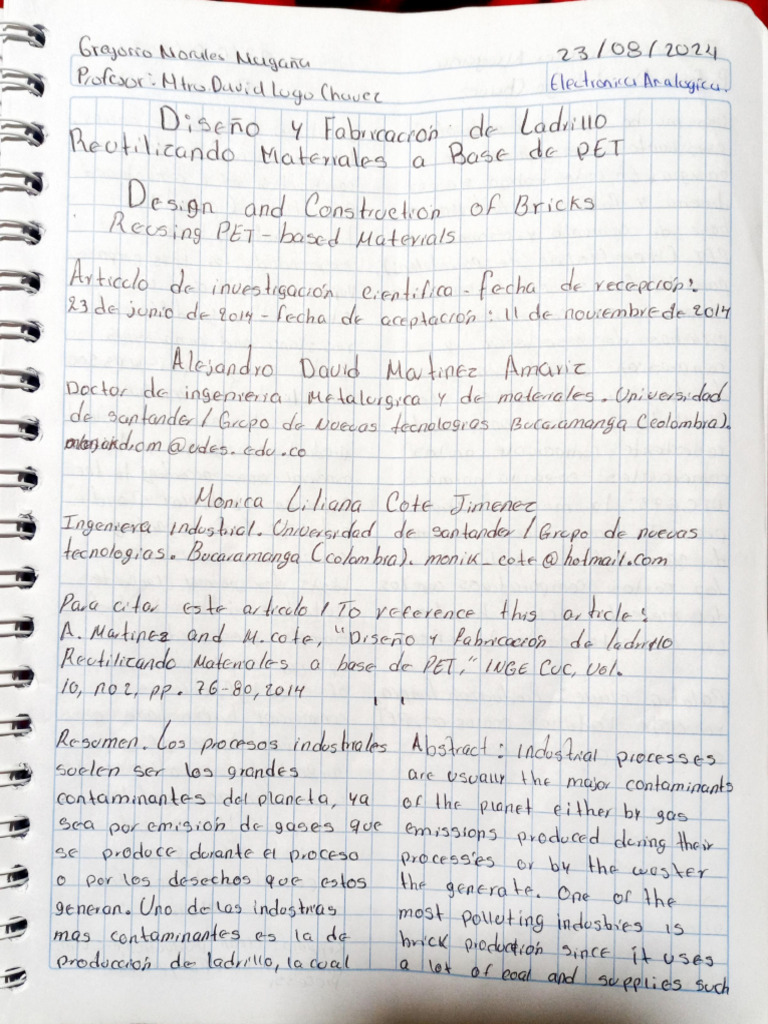 Gregorio Morales Magaña 23/08/2024
Profesor: Mtro David Lugo Chavez Electronica Analogica.
Diseño y Fabricación de Ladrillo
Reutilizando Materiales a Base de PET
Design and Construction of Bricks
Reusing PET-based Materials
Articulo de investigación cientifica - fecha de recepción:
23 de junio de 2014 - fecha de aceptación: 11 de noviembre de 2014
Alejandro David Martinez Amariz
Doctor de ingenieria Metalurgica y de materiales. Universidad
de santander / Grupo de Nuevas tecnologias Bucaramanga (colombia).
@udes.edu.co
Monica Liliana Cote Jimenez
Ingeniera industrial. Universidad de santander / Grupo de nuevas
tecnologias. Bucaramanga (colombia). monik_cote@hotmail.com
Para citar este articulo / To reference this article:
A. Martinez and M. cote, "Diseño y Fabricación de ladrillo
Reutilizando Materiales a base de PET," INGE CUC, Vol.
10, no 2, pp. 76-80, 2014
Resumen. Los procesos industriales
suelen ser los grandes
contaminantes del planeta, ya
sea por emisión de gases que
se produce durante el proceso
o por los desechos que estos
generan. Uno de las industrias
mas contaminantes es la de
producción de ladrillo, la cual
Abstract: industrial processes
are usually the major contaminants
of the planet either by gas
emissions produced during their
processies or by the waster
the generate. One of the
most polluting industries is
brick production since it uses
a lot of coal and supplies such